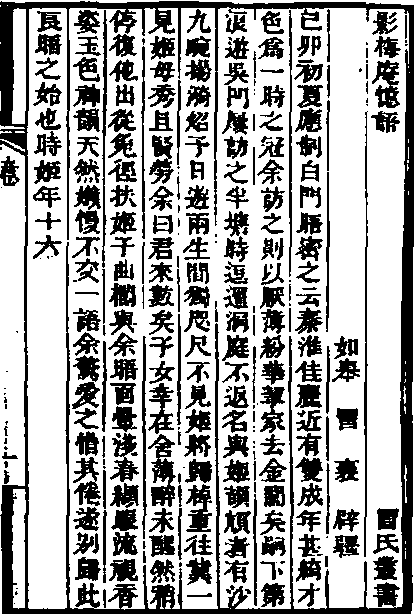 影梅庵憶語　冒氏叢書
如皋　冒襄　辟疆
己卯初夏應制白門晤密之云秦淮佳麗近有雙成年甚綺才
色爲一時之冠余訪之則以厭薄粉華挈家去金閶矣嗣下第
浪遊吳門屢訪之半塘時逗遛洞庭不返名與姬頡頏者有沙
九畹楊漪炤予日遊兩生間獨咫尺不見姬將歸棹重往冀一
見姬母秀且賢勞余曰君來數矣予女幸在舍薄醉未醒然稍
停復他出從兔徑扶姬于曲欄與余晤面暈淺春纈眼流視香
姿玉色神韻天然嬾慢不交一語余驚愛之惜其倦遂別歸此
良晤之始也時姬年十六